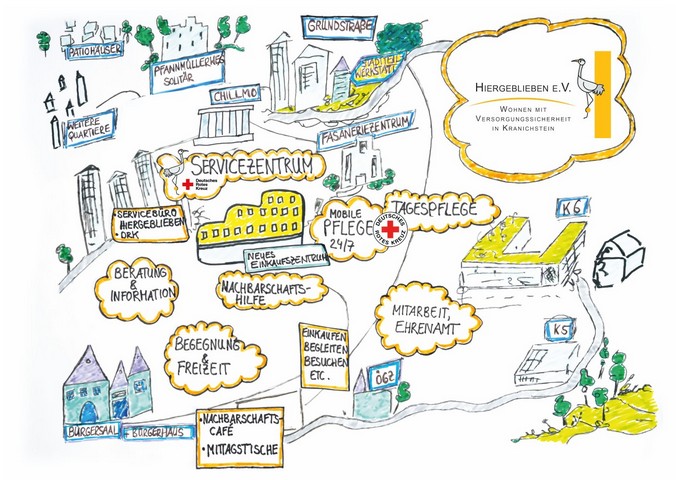 GRUNDSTRAßE
PATIOHÄUSER
PFANNMÜLLERWEG
SOLITÄR
STADTTEIL
WERKSTATT
CHILLMO
HIERGEBLIEBEN E.V.
WOHNEN MIT
VERSORGUNGSSICHERHEIT
IN KRANICHSTEIN
WEITERE
QUARTIERE
FASANERIEZENTRUM
SERVICEZENTRUM
Deutsches
Rotes
Kreuz
SERVICEBÜRO
HIERGEBLIEBEN
DRK
MOBILE
PFLEGE
24/7
DEUTSCHES
ROTES KREUZ
TAGESPFLEGE
K6
NEUES
EINKAUFSZENTRUM
BERATUNG
&
INFORMATION
NACHBARSCHAFTS-
HILFE
MITARBEIT,
EHRENAMT
K5
BEGEGNUNG
&
FREIZEIT
EINKAUFEN
BEGLEITEN
BESUCHEN
ETC.
ÖGZ
BÜRGERSAAL
+ BÜRGERHAUS
• NACHBARSCHAFTS-
CAFÉ
• MITTAGSTISCHE